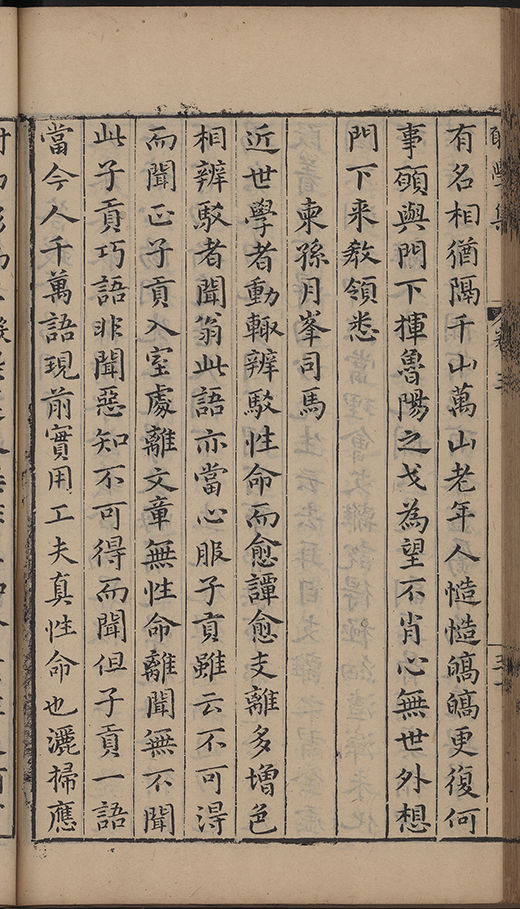 有名相猶隔千山萬山老年人慥慥皜皜更復何
事願與門下揮魯陽之戈為望不肖心無世外想
門下来教領悉
柬孫月峯司馬
近世學者動輙辨駁性命而愈譚愈支離多增色
相辨駁者聞翁此語亦當心服子貢雖云不可淂
而聞正子貢入室處離文章無性命離聞無不聞
此子貢巧語非聞惡知不可得而聞但子貢一語
當今人千萬語現前實用工夫真性命也灑掃應